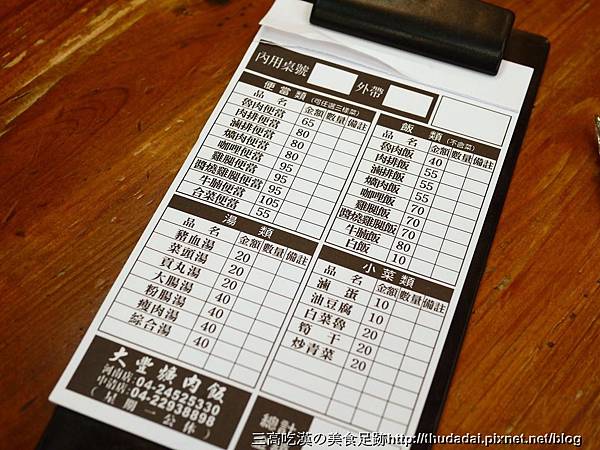 內用桌號 外帶
便當類 (可任選三樣菜)
品名 金額 數量 備註
魯肉便當 65
肉排便當 80
滷排便當 80
爌肉便當 80
咖哩便當 95
雞腿便當 95
醬燒雞便當 95
牛腩便當 105
合菜便當 55
飯類 (不含菜)
品名 金額 數量 備註
魯肉飯 40
肉排飯 55
滷排飯 55
爌肉飯 55
咖哩飯 70
雞腿飯 70
醬燒雞飯 70
牛腩飯 80
白飯 10
湯類
品名 金額 數量 備註
豬血湯 20
菜頭湯 20
貢丸湯 20
大腸湯 40
粉腸湯 40
瘦肉湯 40
綜合湯 40
小菜類
品名 金額 數量 備註
滷蛋 10
油豆腐 10
白菜魯 20
筍干 20
炒青菜 20
大豐爌肉飯
河南店:04-24525330
中清店:04-22938898
(星期一公休)
總計
三高吃漢の美食足跡http://thudadai.pixnet.net/blog